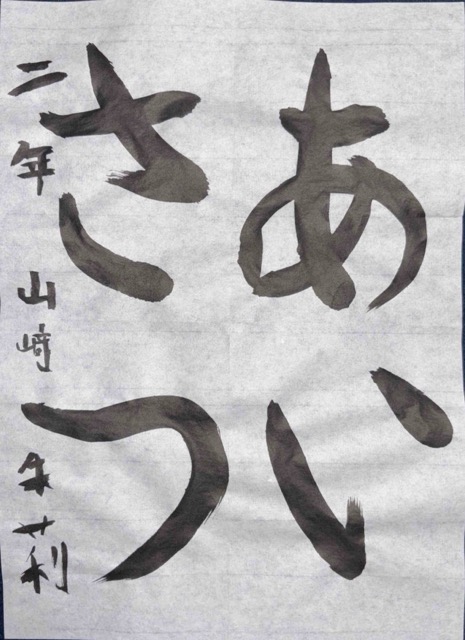 あい
さつ
二年 山﨑 朱莉